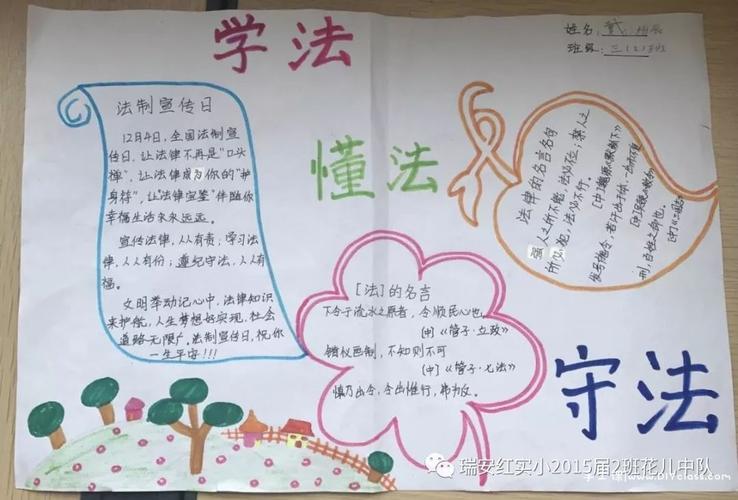 学法
姓名:
班级:三(2)班
法制宣传日
12月4日,全国法制宣
传日,让法律不再是"口头
禅",让法律成为你的"护
身符",让"法律宝鉴"伴随你
幸福生活永永远远。
宣传法律,人人有责;学习法
律,人人有份;遵纪守法,人人有
福。
文明举动记心中,法律知识
来护航,人生梦想好实现,社会
道路无限广。法制宣传日,祝你
一生平安!!!
懂法
法律的名言名句
强人之所不能,法必不立;禁人之
所必犯,法必不行。
[法]的名言
下令于流水之原者,令顺民心也。
[中]《管子·立政》
错仪画制,不知则不可
[中]《管子·七法》
慎乃出令,令出惟行,弗为反。
守法
瑞安红实小2015届2班花儿中队
www.DIYclass.com